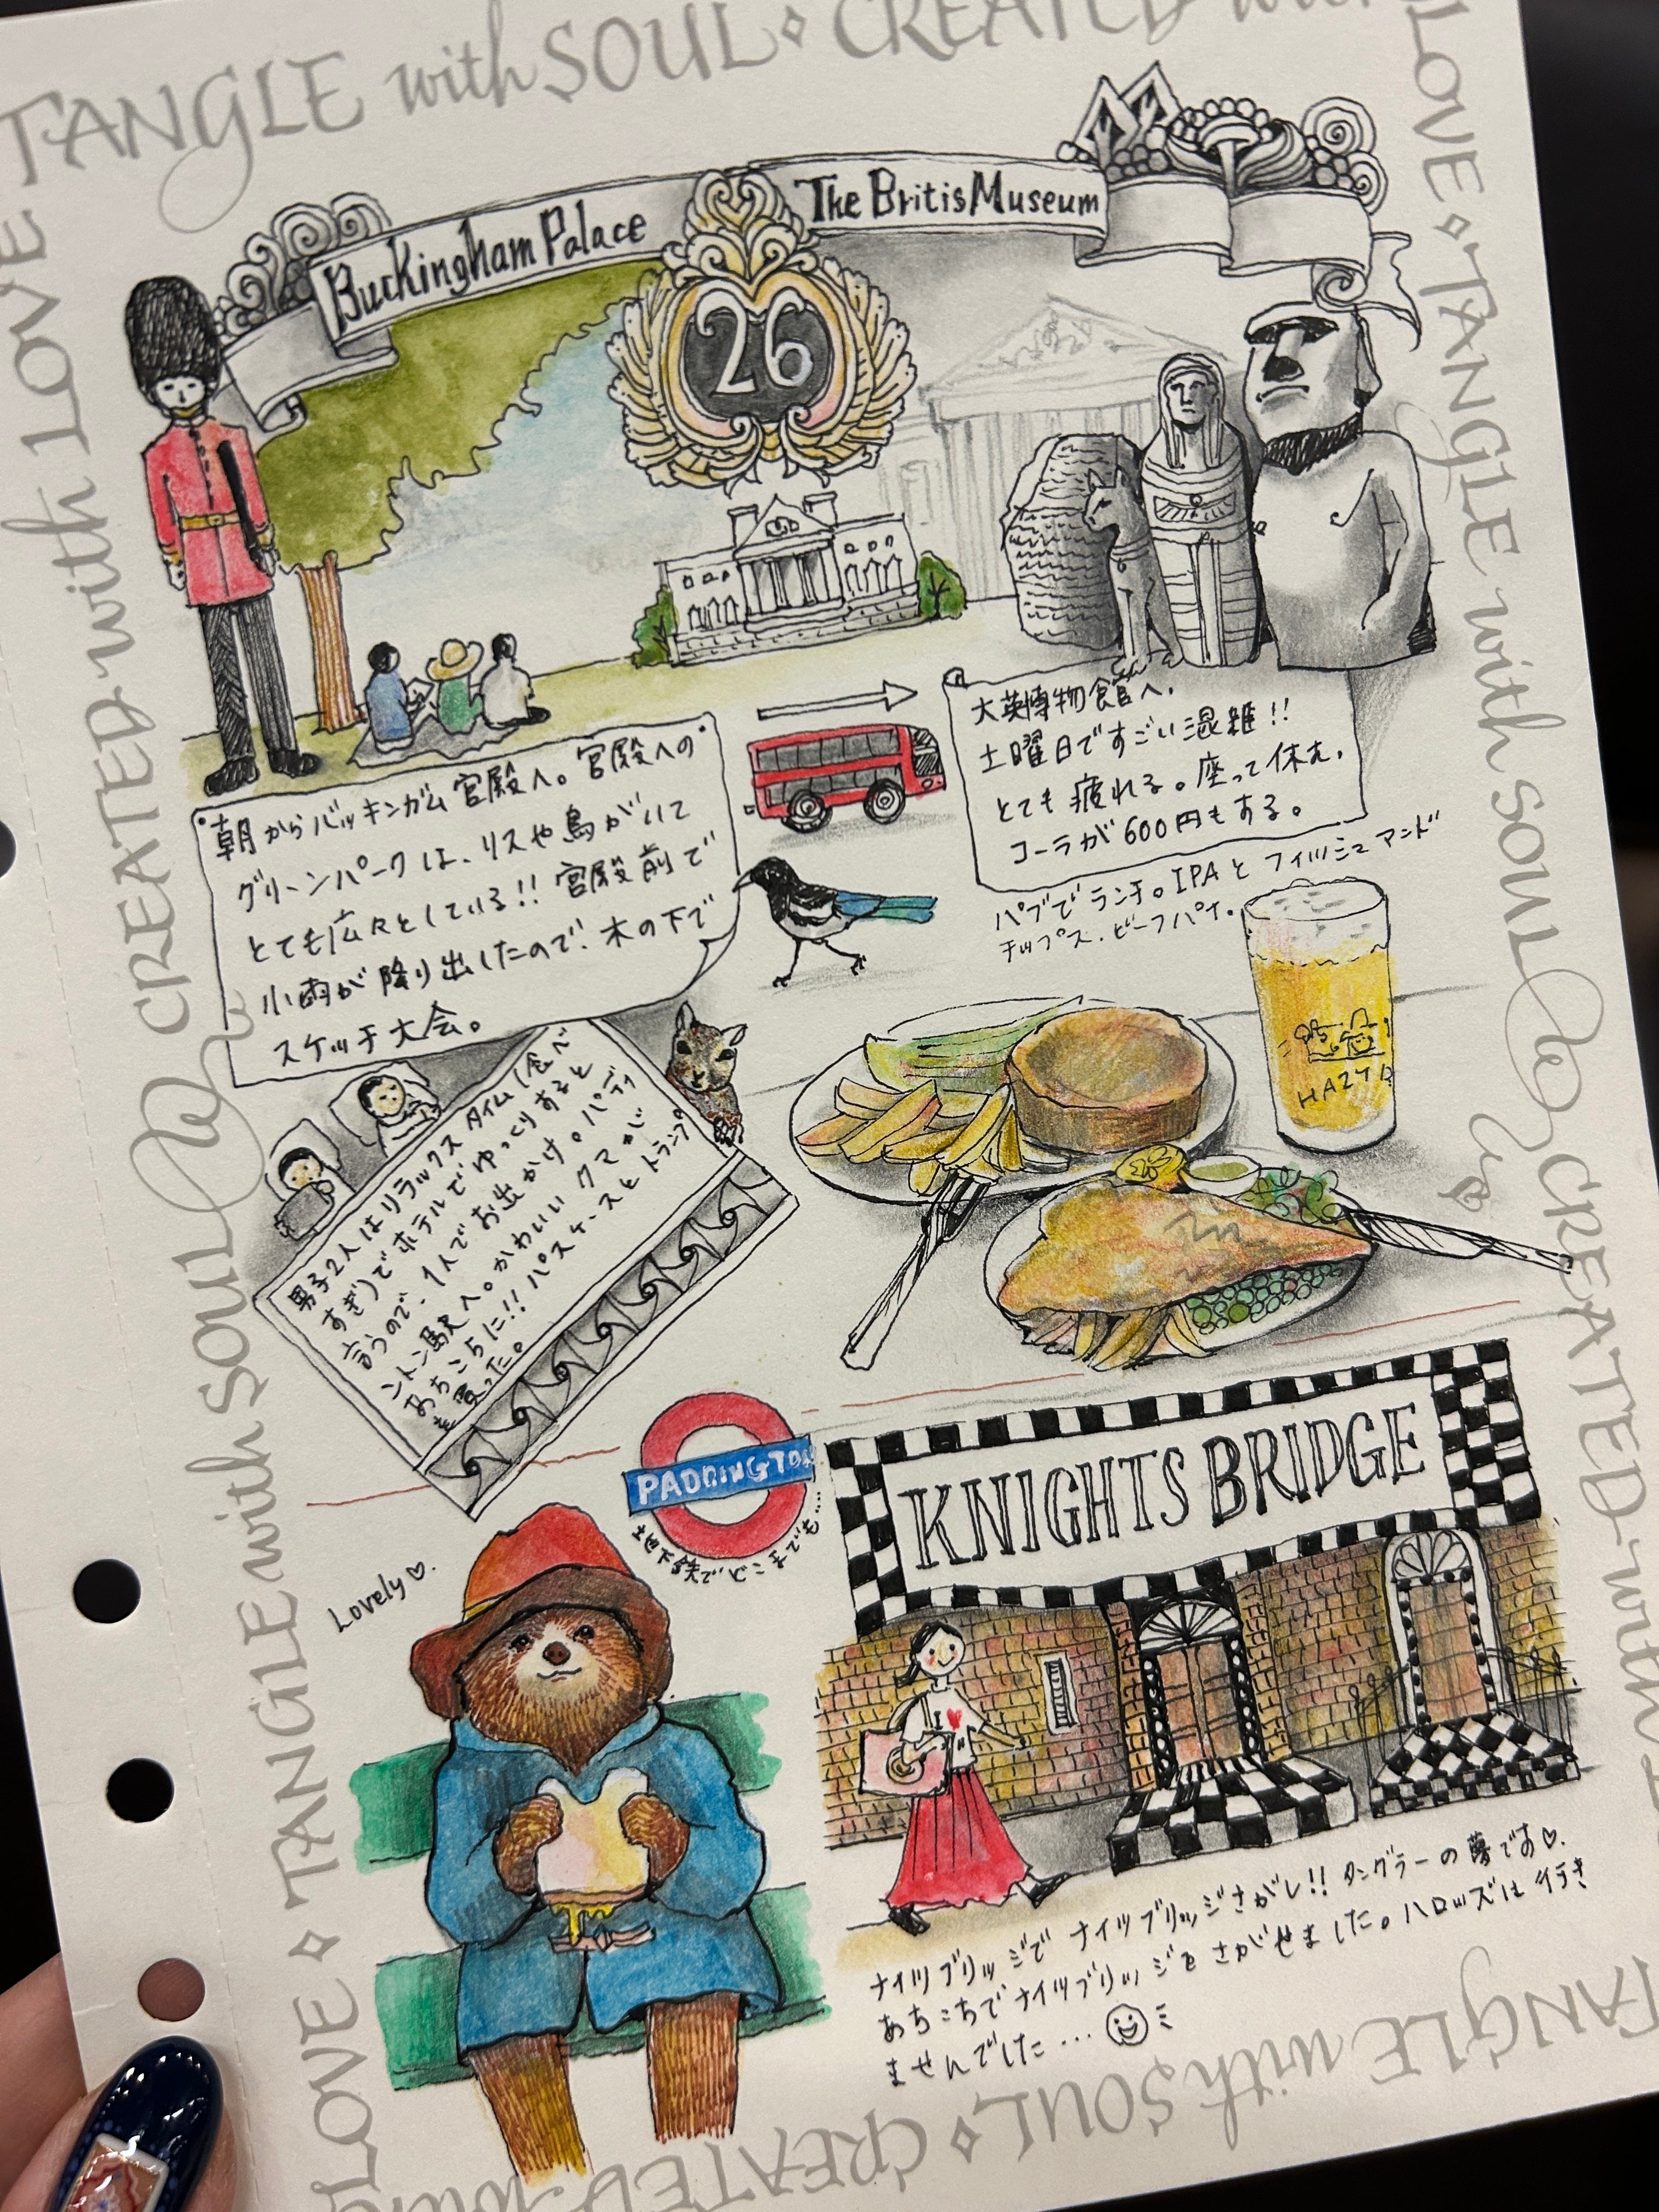 TANGLE with SOUL CREATED with
LOVE TANGLE with SOUL
CREATED with
CREATED with LOVE
TANGLE with SOUL
LOVE
TANGLE with SOUL CREATED
Buckingham Palace
26
The Britis Museum
朝からバッキンガム宮殿へ。宮殿への
グリーンパークは、リスや鳥がいて
とても広々としている!! 宮殿前で
小雨が降り出したので、木の下で
スケッチ大会。
大英博物館へ。
土曜日ですごい混雑!!
とても疲れる。座って休む。
コーラが600円もする。
パブでランチ。IPAとフィッシュアンド
チップス、ビーフパイ。
HAZY
男子2人はリラックスタイム(食べ
すぎ)でホテルでゆっくりすると
言うので、1人でお出かけ。パディ
ントン駅へ。かわいいクマが
あちこちに!! パスケースとトランプ
を買った。
PADDINGTON
地下鉄でどこまでも....
Lovely♡.
KNIGHTS BRIDGE
I ♥
ナイツブリッジで ナイツブリッジさがし!! タングラーの夢です♡.
あちこちでナイツブリッジをさがせました。ハロッズは行き
ませんでした...